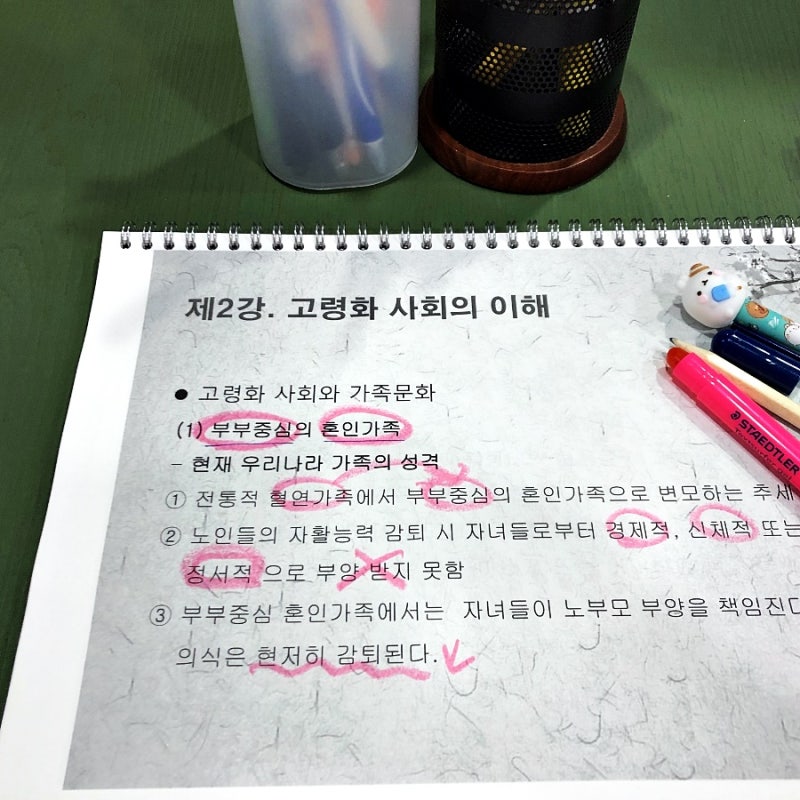 제2강. 고령화 사회의 이해
● 고령화 사회와 가족문화
(1) 부부중심의 혼인가족
- 현재 우리나라 가족의 성격
① 전통적 혈연가족에서 부부중심의 혼인가족으로 변모하는 추세
② 노인들의 자활능력 감퇴 시 자녀들로부터 경제적, 신체적 또는
정서적 으로 부양 받지 못함
③ 부부중심 혼인가족에서는 자녀들이 노부모 부양을 책임진다
의식은 현저히 감퇴된다.
STAEDTLER